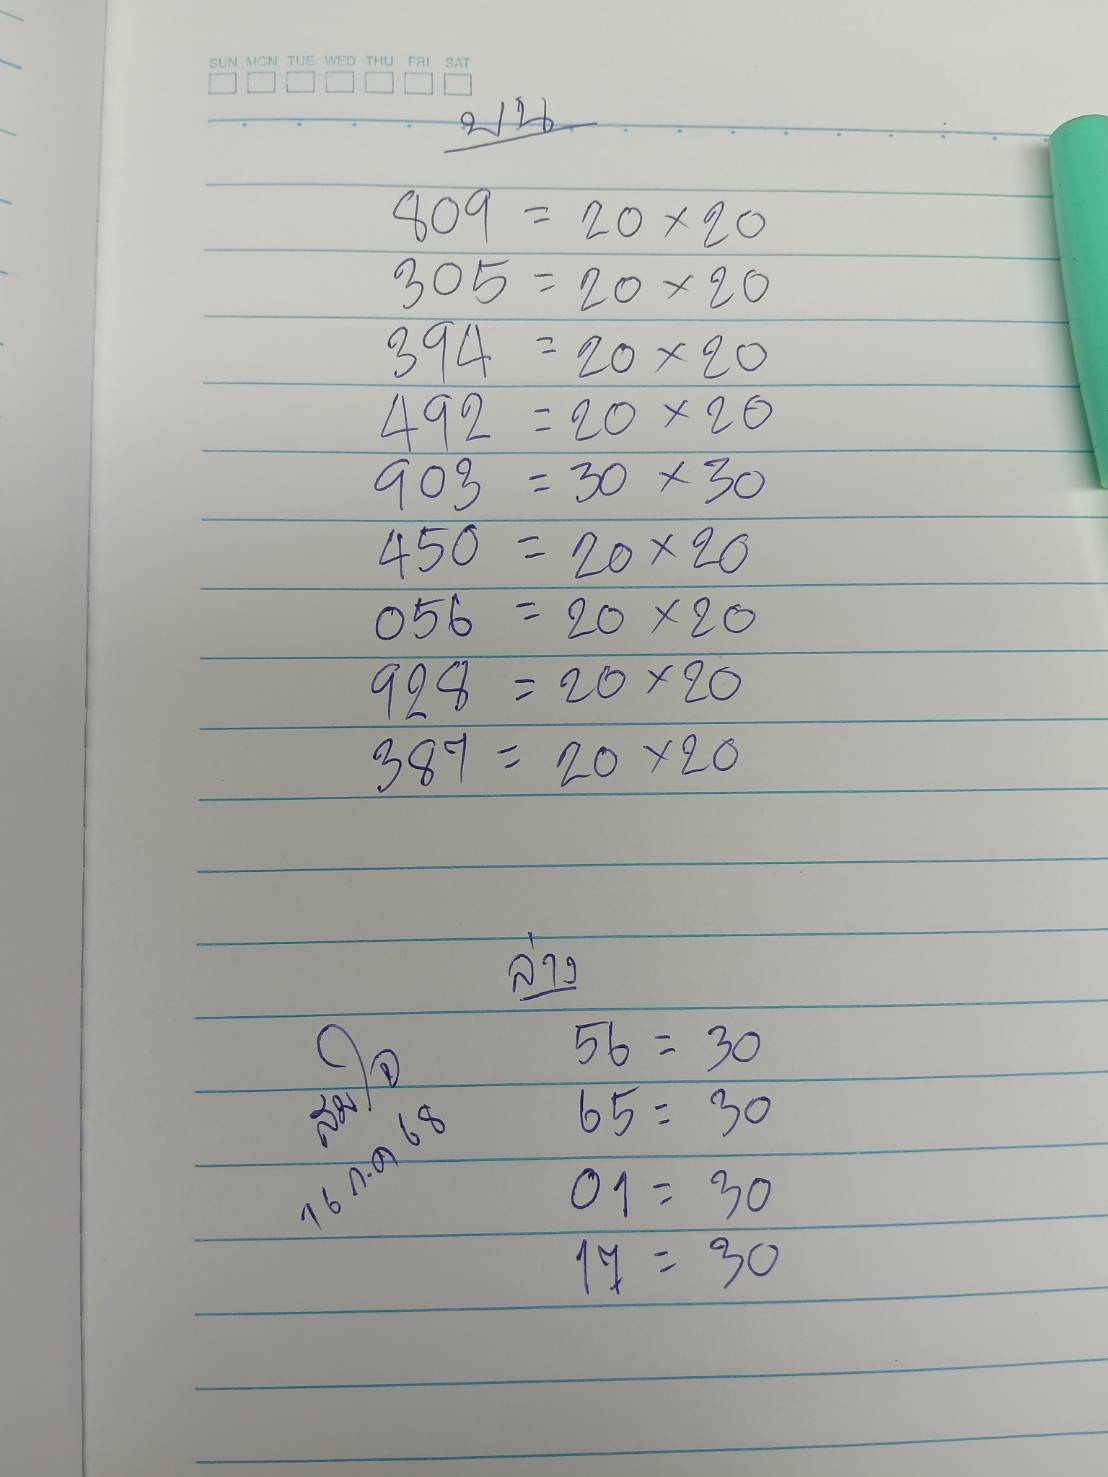 SUN MON TUE WED THU FRI SAT
บน
809 = 20 × 20
305 = 20 × 20
394 = 20 × 20
492 = 20 × 20
903 = 30 × 30
450 = 20 × 20
056 = 20 × 20
928 = 20 × 20
387 = 20 × 20
ล่าง
56 = 30
65 = 30
01 = 30
17 = 30
สมใจ
16 ก.ค 68